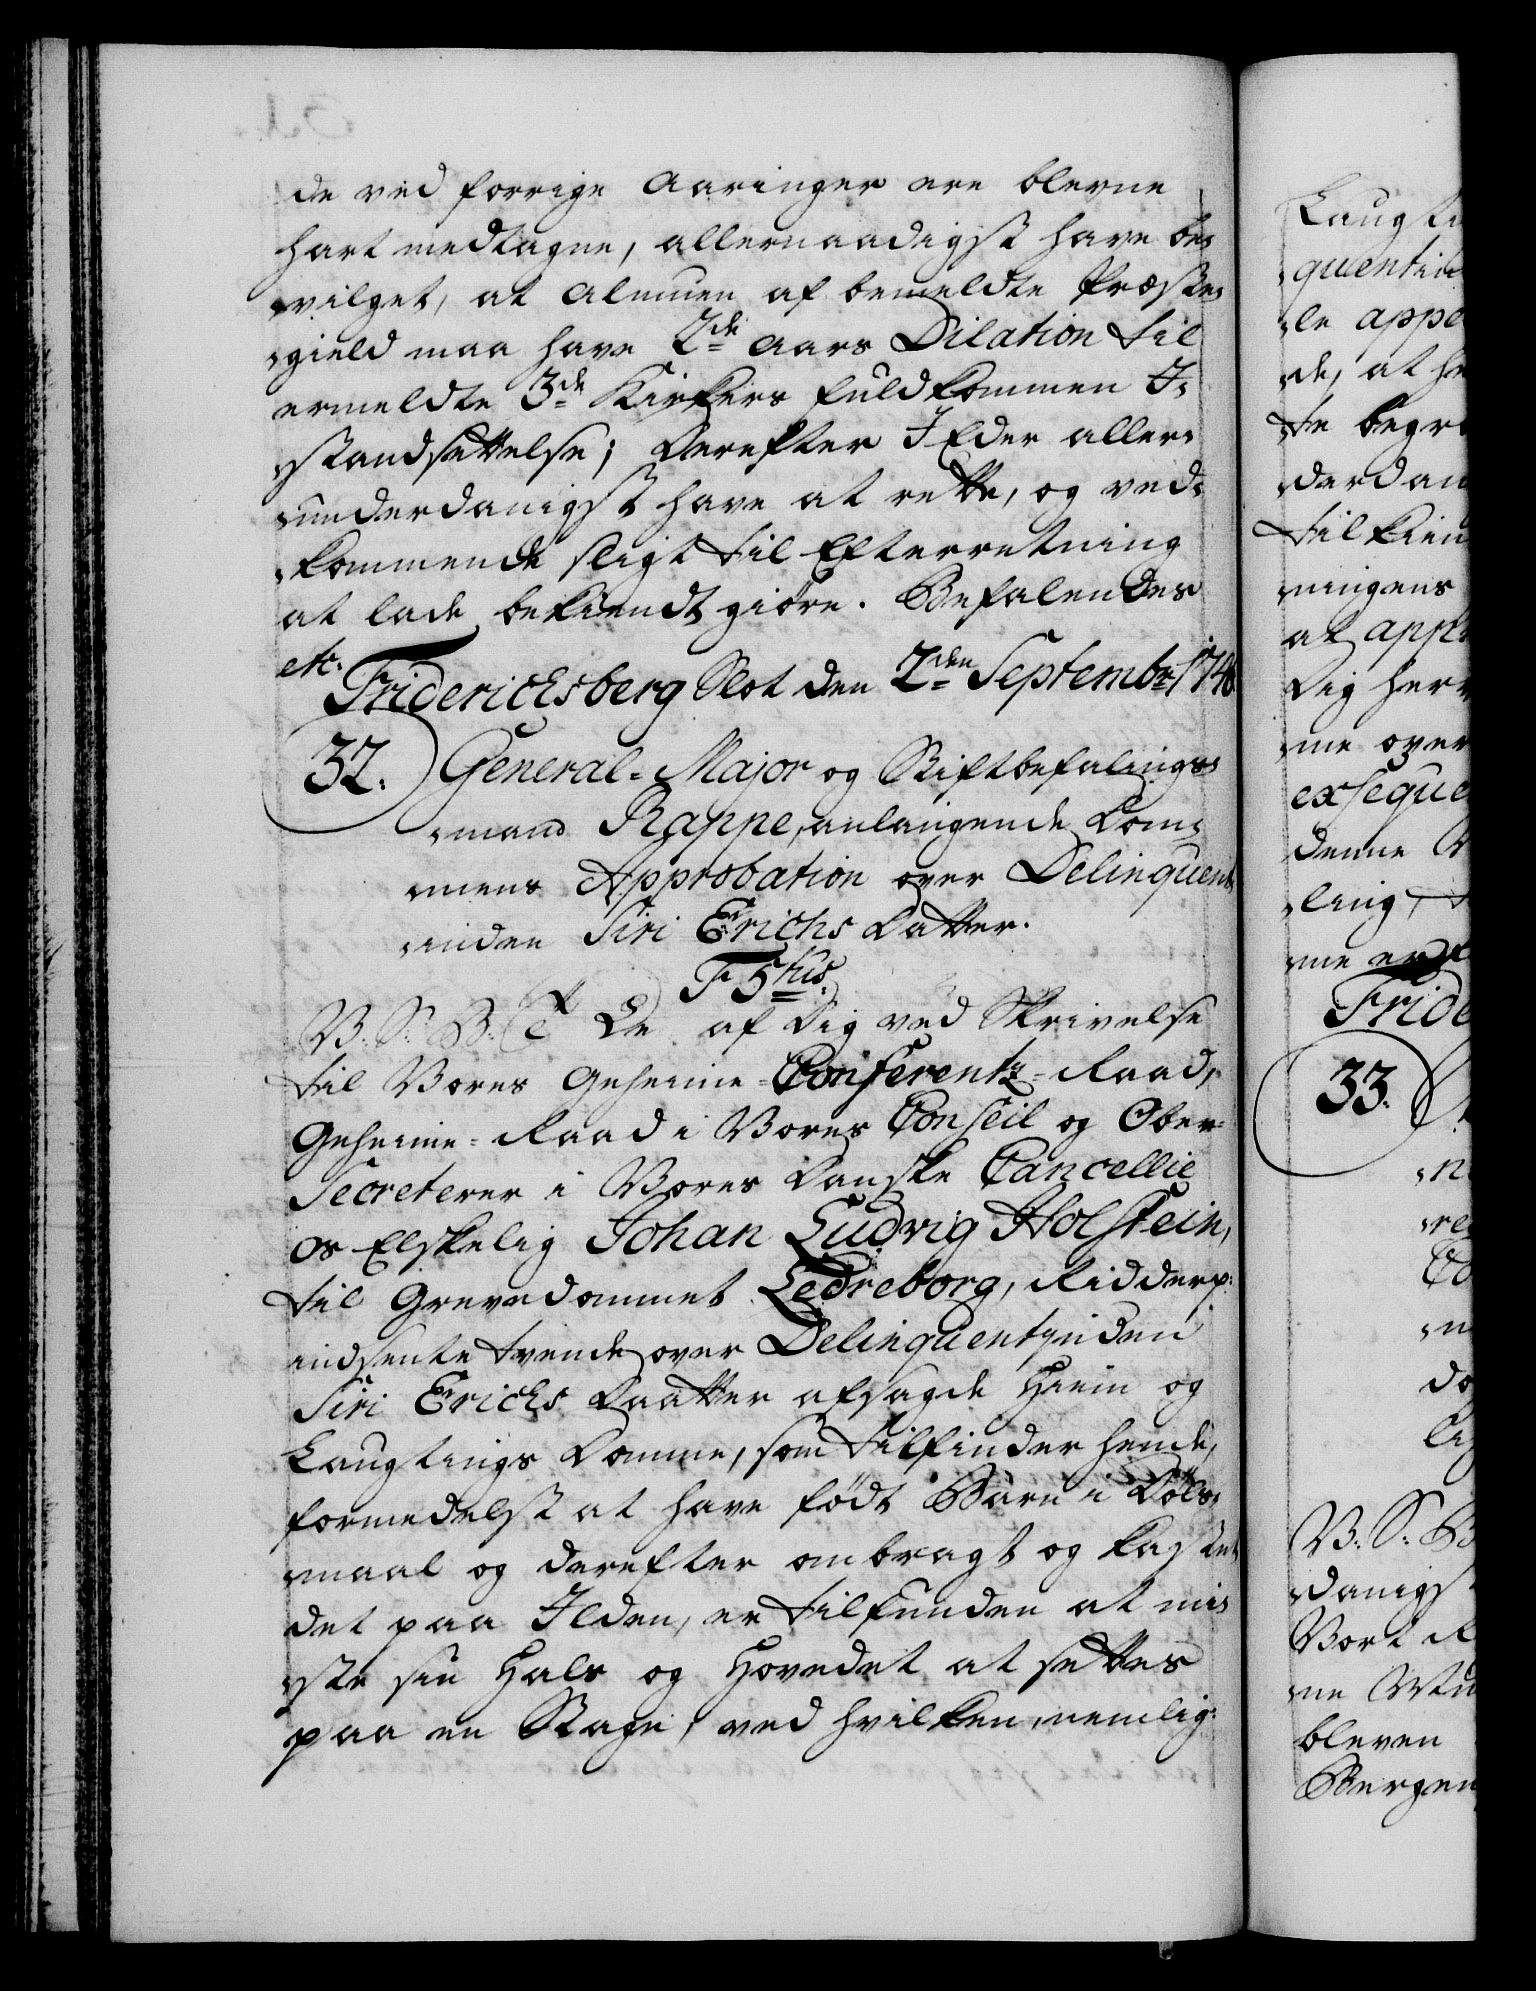 de ved forrige Aaringer ere blevne
hart medtagne, allernaadigst have be-
vilget, at Almuen af bemeldte Præste-
gield maa have 2de Aars Dilation til
ermeldte 3de Kirkers fuldkommen I-
standsættelse; Derefter I Eder aller-
underdanigst have at rette, og ved-
kommende sligt til Efterretning
at lade bekiendtgiøre. Befalendes
etc. Friderichsberg Slot den 2den Septembr 1746
32. General-Major og Stiftbefalings-
mand Rappe, anlangende Dom-
mens Approbation over Delinquent-
inden Siri Erichs Datter.
F 5tus
V. S. G. T. De af Dig ved Skrivelse
til Vores Geheime-Conferentz-Raad,
Geheime-Raad i Vores Conseil og Ober-
Secreterer i Vores Danske Cancellie
os Elskelig Johan Ludvig Holstein,
til Grevedommet Ledreborg, Ridder p:
indsente tvende over Delinquentqviden
Siri Erichs Daatter afsagde Hiem og
Laugtings Domme, som tilfinder hende,
formedelst at have født Barn i Døls-
maal og derefter ombragt og kastet
det paa Ilden, er tilfunden at mi-
ste sin Hals og Hovedet at settes
paa en Stage, ved hvilken nemlig
Laugti
quentin
le appe
de, at he
te begre
derdan
til kien
ningens
at app
Dig her
me over
exseque
denne
ling,
Fride
33.
V. S. G
danigst
Vort R
bleven
Bergen